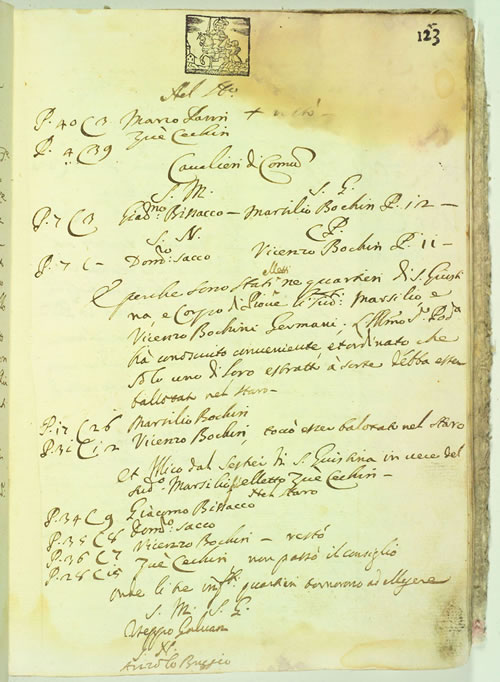 123
Nel Sto.
P. 40 C 3 Marco + restò
P. 4 C 39 Zuè Cechin
Cavalieri di Comun
S. M. S. G.
P. 7 C 3 Bissacco — Marsilio Bochin P. 12 —
S. N. C P.
P. 7 C — Domco. Sacco Vicenzo Bochin P. 11 —
E perche sono stati eletti ne quartieri di S. Giusti
na, e Corpo di Pione li sudi. Marsilio, e
Vicenzo Bochini Germani. L'Illmo Sr. Podtà
hà conosciuto conveniente, et ordinato che
solo uno di loro estratti à sorte debba esser
ballotato nel staro —
P. 17 C 26 Marsilio Bochin
P. 31 C 12 Vicenzo Bochin, toccò esser balotato nel staro
et Illico dal di S. Giustina in vece del
sudo. Marsilio fu eletto Zuè Cechin —
Nel staro
P. 34 C 9 Giacomo Bissacco
P. 35 C 8 Domco. Sacco
P. 36 C 7 Vicenzo Bochin — restò
P. 28 C 15 Zuè Cechin non passò il consiglio
onde li tre quartieri tornorono ad elegere
S. M. S. G.
S. N.